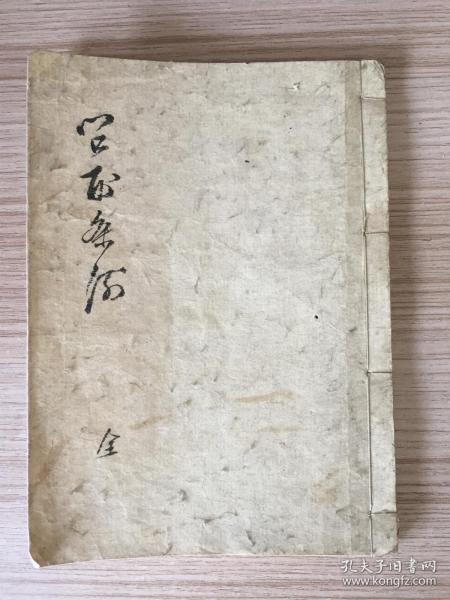 问刑条例
全
孔夫子旧书网
www.kongfz.com